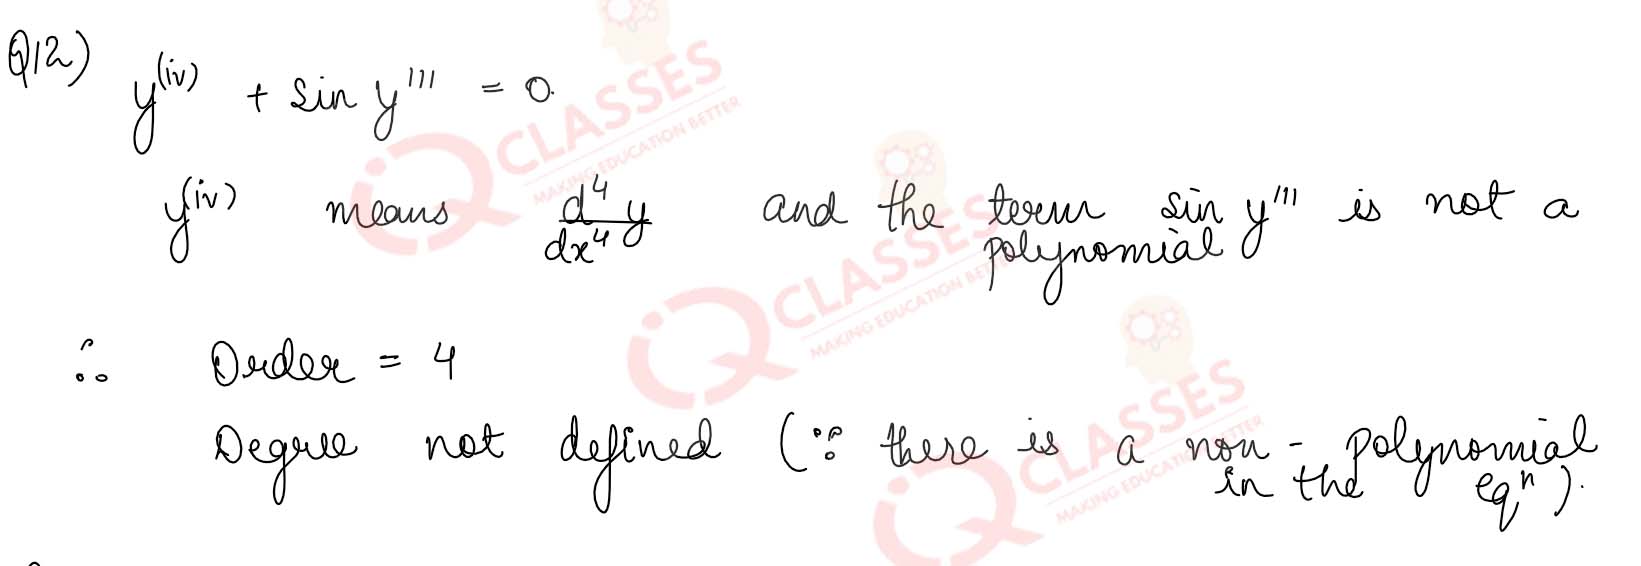 Q12)
y⁽ⁱᵛ⁾ + sin y''' = 0.
y⁽ⁱᵛ⁾ means d⁴/dx⁴ y and the term sin y''' is not a
polynomial
∴ Order = 4
Degree not defined (∵ there is a non - polynomial
in the eqⁿ).
iQ CLASSES
MAKING EDUCATION BETTER
iQ CLASSES
MAKING EDUCATION BETTER
iQ CLASSES
MAKING EDUCATION BETTER